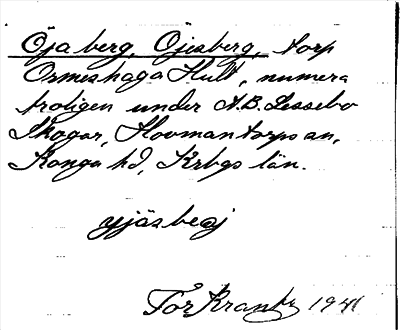 Öjaberg, Öjesberg, torp
Ormeshaga Hult, numera
troligen under A.B. Lessebo
Skogar, Hovmantorps an,
Konga hd, Krbgs län.
Tor Krantz 1941